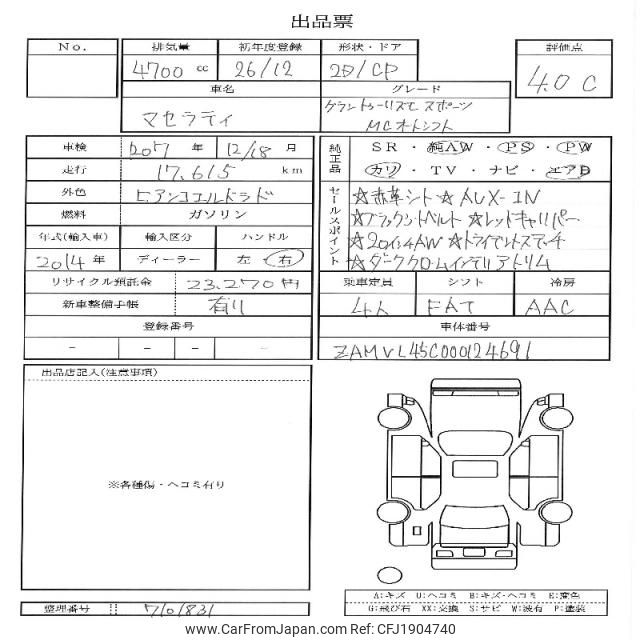 出品票
No. 排気量 初年度登録 形状・ドア 評価点
4700 cc 26/12 2D/CP 4.0 C
車名 グレード
マセラティ グランツーリズモ スポーツ
MCオートシフト
車検 2017 年 12/18 月
走行 17,615 km
外色
燃料 ガソリン
年式(輸入車) 輸入区分 ハンドル
2014年 ディーラー 左・右
リサイクル預託金 23,270円
新車整備手帳 有り
登録番号
- - - -
純正品 SR・純AW・PS・PW
カワ・TV・ナビ・エアB
セールスポイント ☆赤革シート☆AUX-IN
☆ブラックシートベルト☆レッドキャリパー
☆20インチAW☆
☆ダーククロームインテリアトリム
乗車定員 シフト 冷房
4人 FAT AAC
車体番号
ZAMVL45C000124691
出品店記入(注意事項)
※各種傷・ヘコミ有り
A:キズ U:ヘコミ B:キズ・ヘコミ E:変色
G:飛び石 XX:交換 S:サビ W:波有 P:塗装
整理番号 7101831
www.CarFromJapan.com - CFJ1904740